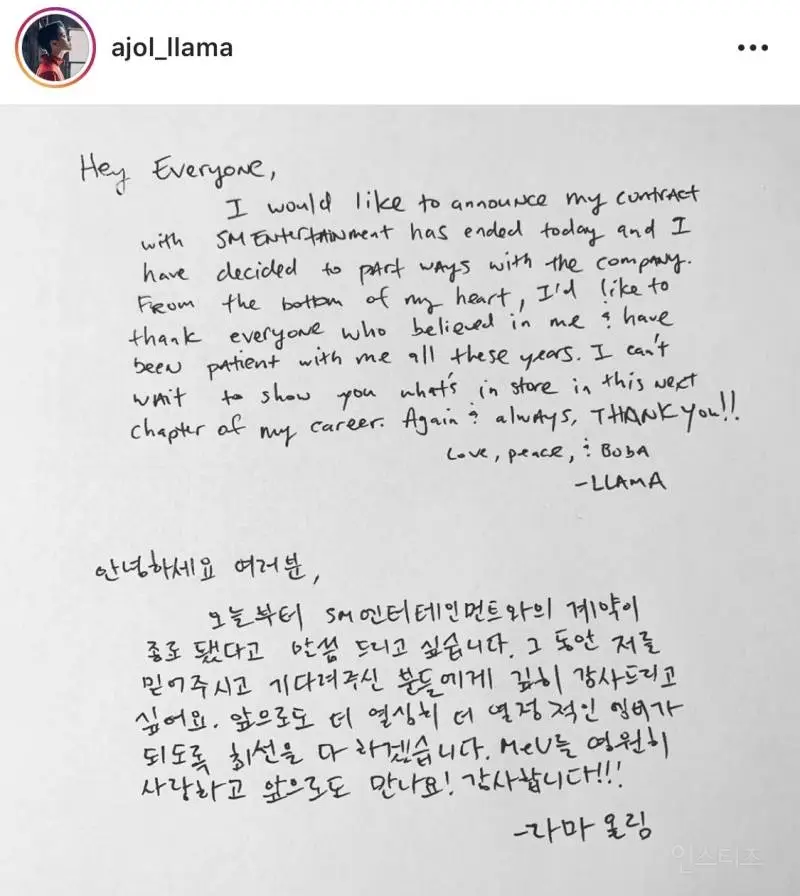 ajol_llama
Hey Everyone,
I would like to announce my contract
with SM Entertainment has ended today and I
have decided to part ways with the company.
From the bottom of my heart, I'd like to
thank everyone who believed in me & have
been patient with me all these years. I can't
wait to show you what's in store in this next
chapter of my career. Again & always, THANK you!!
Love, peace, & Boba
-LLAMA
안녕하세요 여러분,
오늘부터 SM엔터테인먼트와의 계약이
종료 됐다고 말씀 드리고 싶습니다. 그 동안 저를
믿어주시고 기다려주신 분들에게 깊히 감사드리고
싶어요. 앞으로도 더 열심히 더 열정적인 엠버가
되도록 최선을 다 하겠습니다. MeU들 영원히
사랑하고 앞으로도 만나요! 감사합니다!!!
-라마 올림
인스티즈